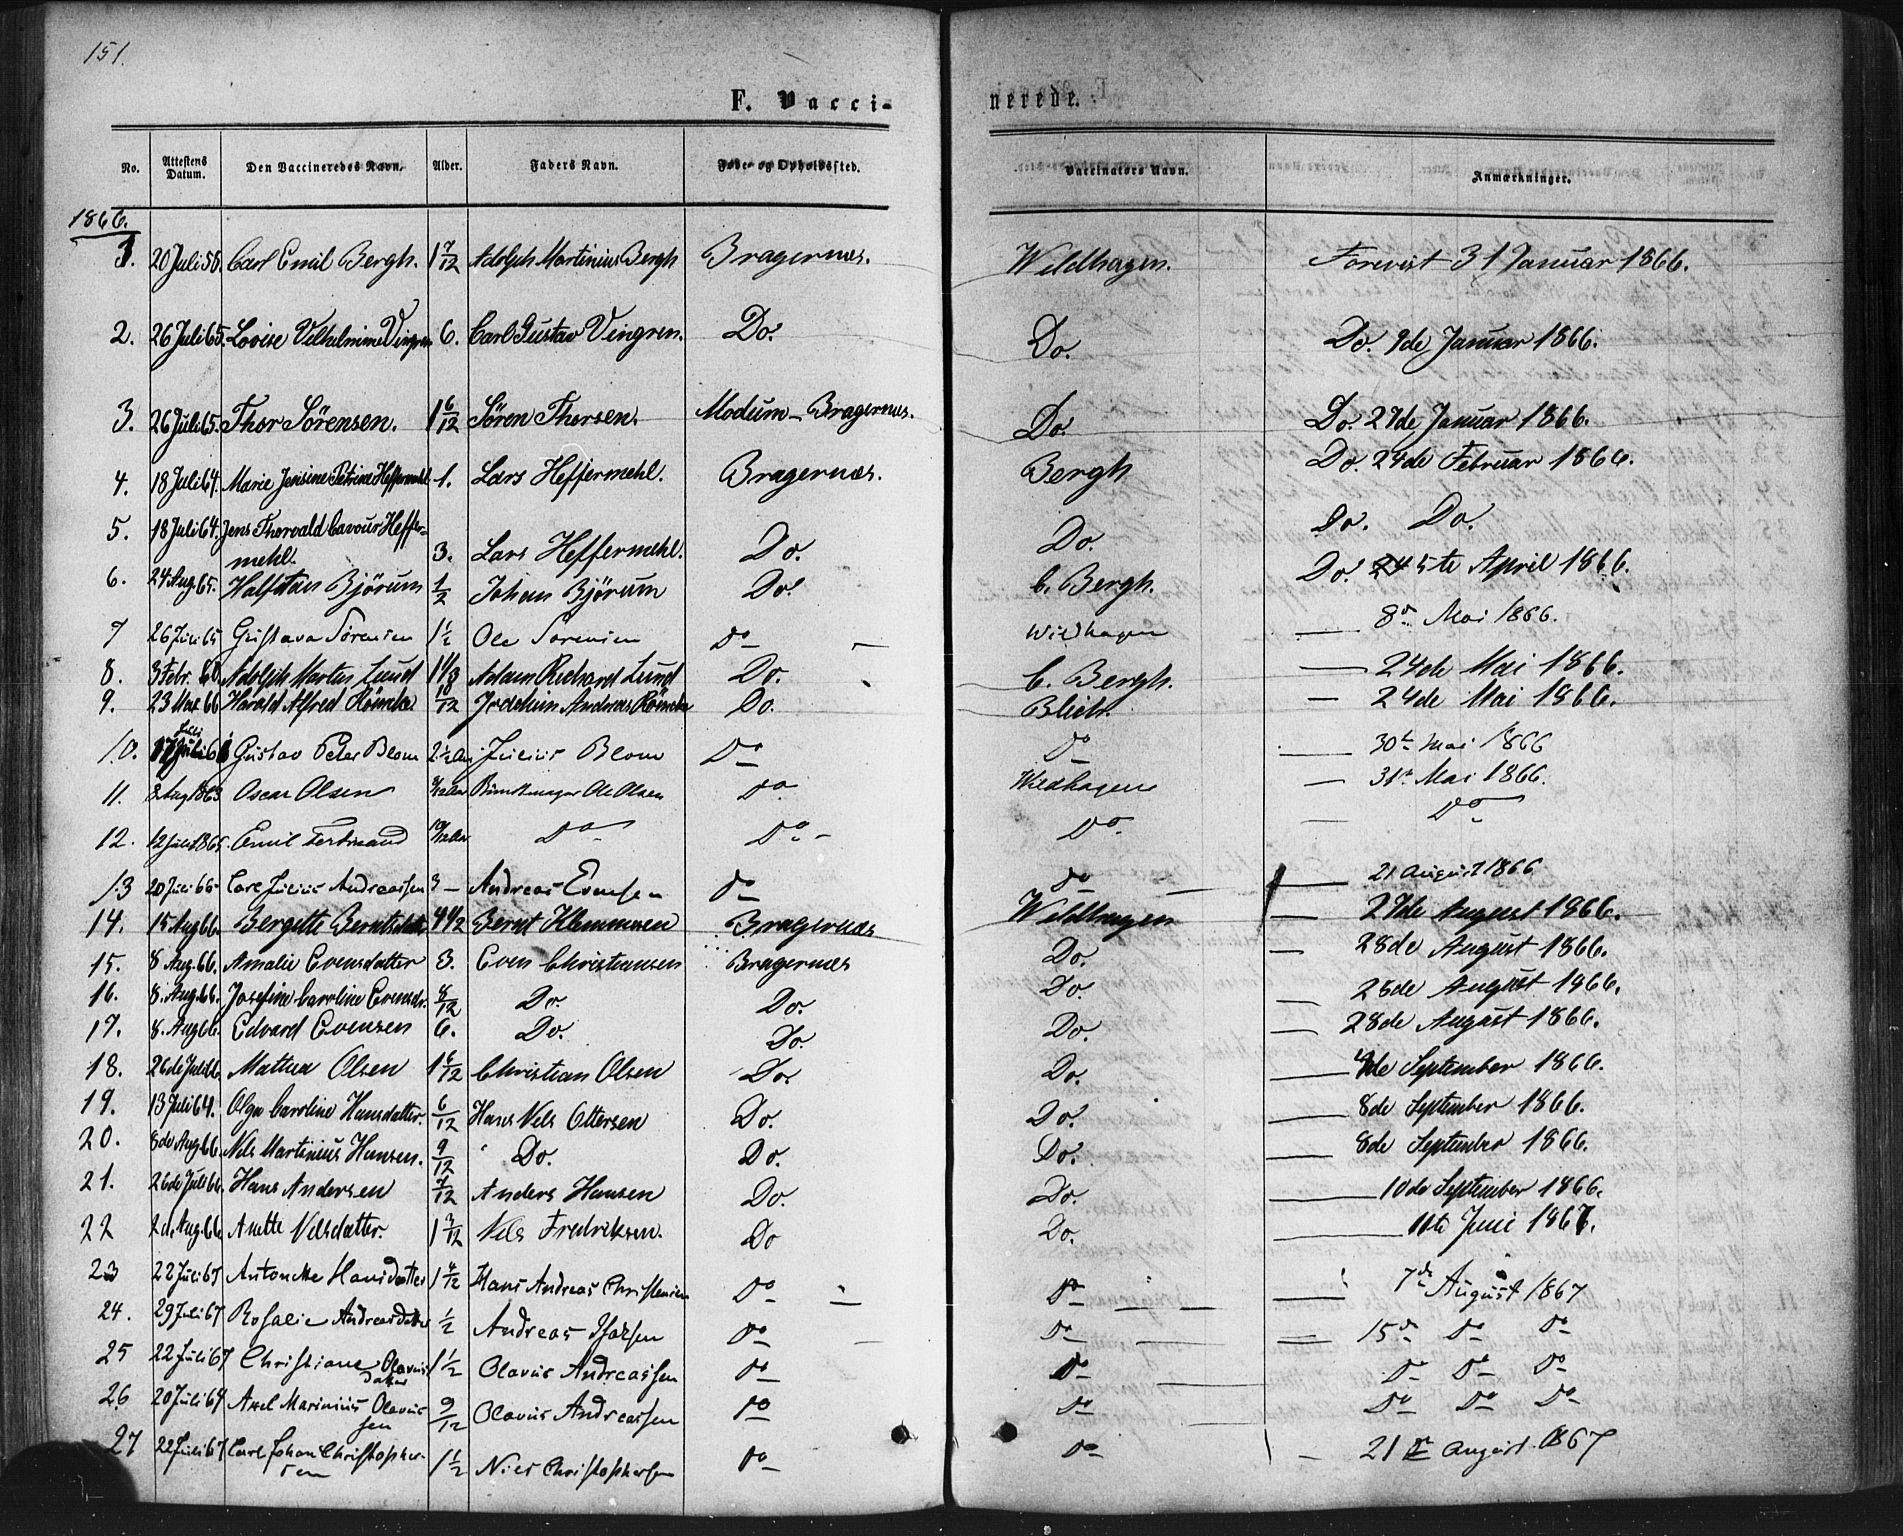 151.
F. Vacci-
nerede.
No. Attestens Datum. Den Vaccineredes Navn. Alder. Faders Navn. Føde- og Opholdssted. Vaccinators Navn. Anmærkninger.
1866.
1. 20 Juli 58. Carl Emil Bergh. 1 7/12 Adolph Martinius Bergh Bragernæs. Wildhagen. Forevist 31 Januar 1866.
2. 26 Juli 65. Lovise Vilhelmine Vingren 6. Carl Gustav Vingren. Do. Do. Do. 9de Januar 1866.
3. 26 Juli 65. Thor Sörensen. 1 6/12 Sören Thorsen. Modum - Bragernæs. Do. Do. 27de Januar 1866.
4. 18 Juli 64. Marie Jensine Petrine Heffermehl. 1. Lars Heffermehl. Bragernæs. Bergh Do. 24de Februar 1866.
5. 18 Juli 64. Jens Thorvald Cavour Heffer-
mehl. 3. Lars Heffermehl. Do. Do. Do. Do.
6. 24 Aug. 65. Halfdan Björum 1/2 Johan Björum Do. C. Bergh. Do. 5te April 1866.
7 26 Juli 65 Gustava Sørensen 1 1/2 Ole Sørensen Do Wildhagen — 8de Mai 1866.
8. 3 Febr. 60. Adolph Martin Lund 1 1/3 Adam Richard Lund Do. C. Bergh. — 24de Mai 1866.
9. 23 Mai 66 Harald Alfred Römcke 10/12 Joachim Andreas Römcke Do. Blich. — 24de Mai 1866.
10. 17 Juli 61 Gustav Peter Blom 2 1/2 Aar Julius Blom Do Do — 30te Mai 1866
11. 8 Aug 1863 Oscar Olsen 9/12 Aar Ole Olsen Do Wildhagen — 31te Mai 1866.
12. 12 Juli 1865. Emil Ferdinand 10/12 Aar Do Do - Do — Do
13 20 Juli 66 Carl Julius Andreassen 3 — Andreas Evensen Do Do — 21 August 1866
14. 15 Aug 66. Bergitte Berntsdatter 4 1/2 Bernt Klemmesen Bragernæs Wildhagen — 27de August 1866.
15. 8 Aug. 66. Amalie Evensdatter 3. Even Christiansen Bragernæs Do. — 28de August 1866.
16. 8. Aug. 66. Josefine Caroline Evensdr. 8/12 Do. Do. Do. — 28de August 1866.
17. 8. Aug 66. Edvard Evensen 6. Do. Do. Do. — 28de August 1866.
18. 26de Juli 66. Mathea Olsen 1 6/12 Christian Olsen Do. Do. — 4de September 1866.
19. 13 Juli 64. Olga Caroline Hansdatter. 6/12 Hans Nels Ottersen Do. Do. — 8de September 1866.
20. 8de Aug. 66. Nils Martinius Hansen. 9/12 Do. Do. Do. — 8de September 1866.
21. 26de Juli 66. Hans Andersen 7/12 Anders Hansen Do. Do. — 10de September 1866.
22 2d. Aug. 66 Anette Nilsdatter. 1 7/12 Nels Fredriksen. Do Do. — 11te Juni 1867.
23 22 Juli 67 Antonette Hansdatter 1 4/12 Hans Andreas Christensen Do Do — 7de August 1867
24. 29 Juli 67 Rosalie Andreasdatter 1/2 Andreas Isaksen Do Do — 15de Do Do
25 22 Juli 67 Christiane Olavus
datter 1 1/2 Olavus Andreassen Do Do Do Do Do
26 20 Juli 67 Axel Marinius Olavus
sen 9/12 Olavus Andreassen Do Do Do Do Do
27 22 Juli 67 Carl Johan Christopher-
sen 1 1/2 Niels Christophersen Do Do — 21de August 1867